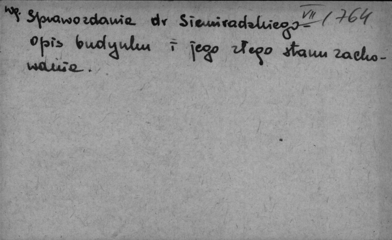 wg Sprawozdania dr Siemiradzkiego VII/1764
opis budynku i jego złego stanu zacho-
wania.